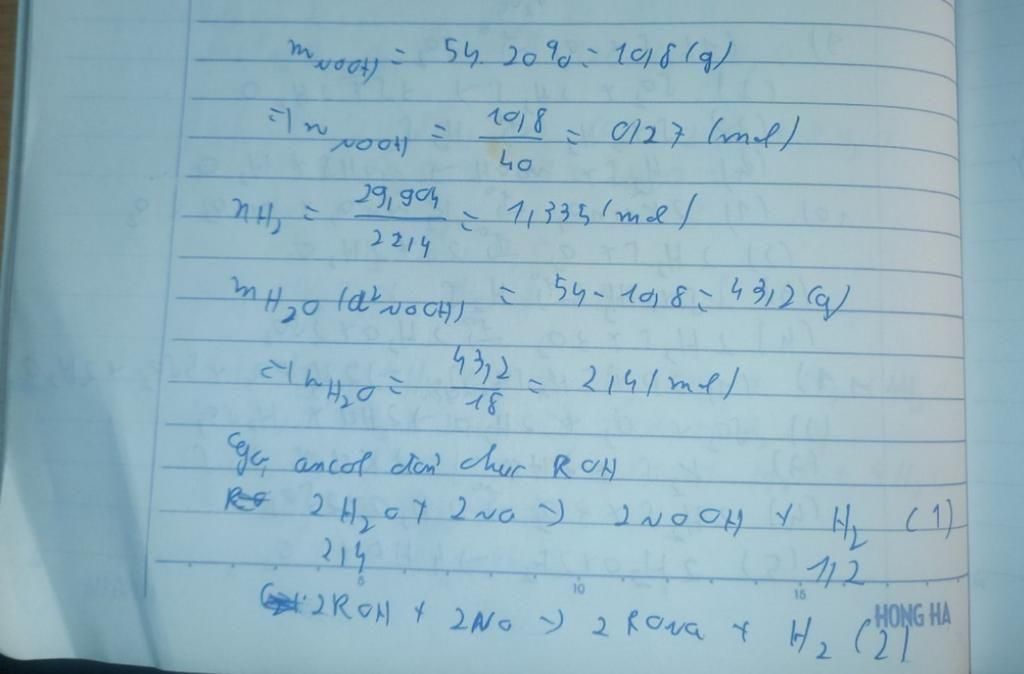 mNaOH = 54. 20% = 10,8 (g)
=> nNaOH = 10,8 / 40 = 0,27 (mol)
nH2 = 29,904 / 22,4 = 1,335 (mol)
mH2O (d² NaOH) = 54 - 10,8 = 43,2 (g)
=> nH2O = 43,2 / 18 = 2,4 (mol)
Gọi ancol đơn chức ROH
2H2O + 2Na -> 2NaOH + H2 (1)
2,4 1,2
5 10 15
2ROH + 2Na -> 2RONa + H2 (2)
HONG HA